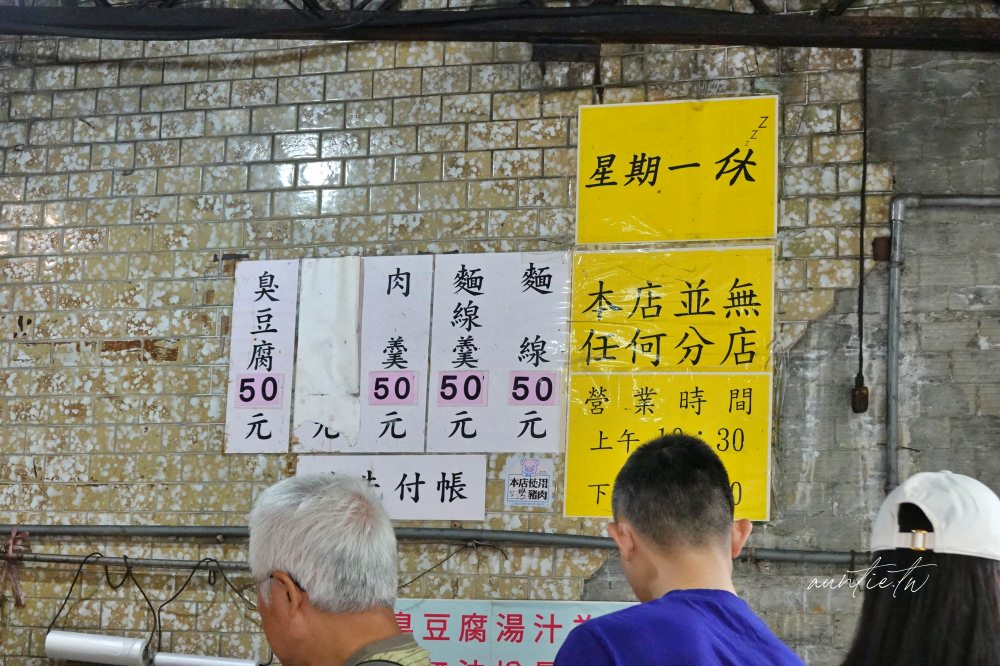 星期一休
zzz
本店並無
任何分店
營業時間
上午 10:30
下
臭豆腐
50
元
元
肉羹
50
元
麵線羹
50
元
麵線
50
元
付帳
本店使用
豬肉
臭豆腐湯汁
auntie.tw